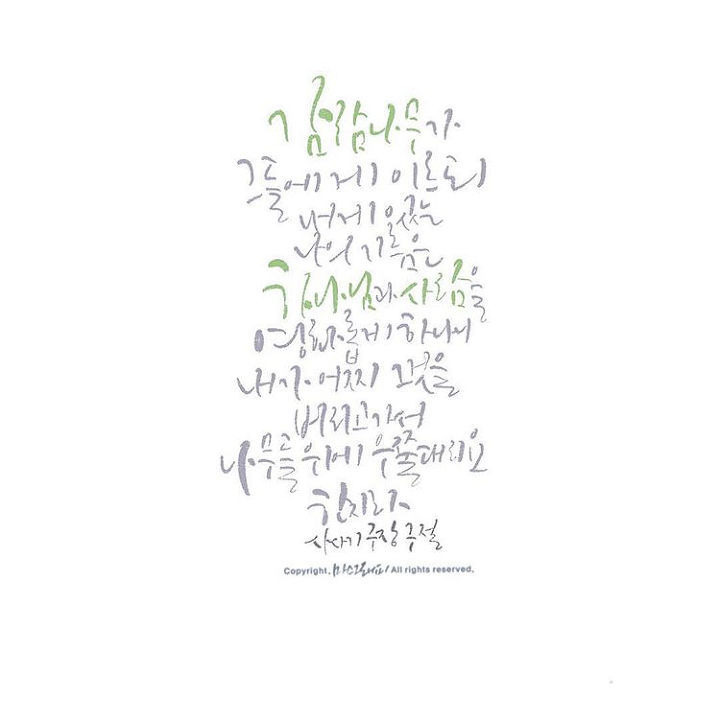 감람나무가
그들에게 이르되
내게 있는
나의 기름은
하나님과 사람을
영화롭게 하나니
내가 어찌 그것을
버리고 가서
나무들 위에 우쭐대리요
한지라
사사기 구장 구절
Copyright. All rights reserved.